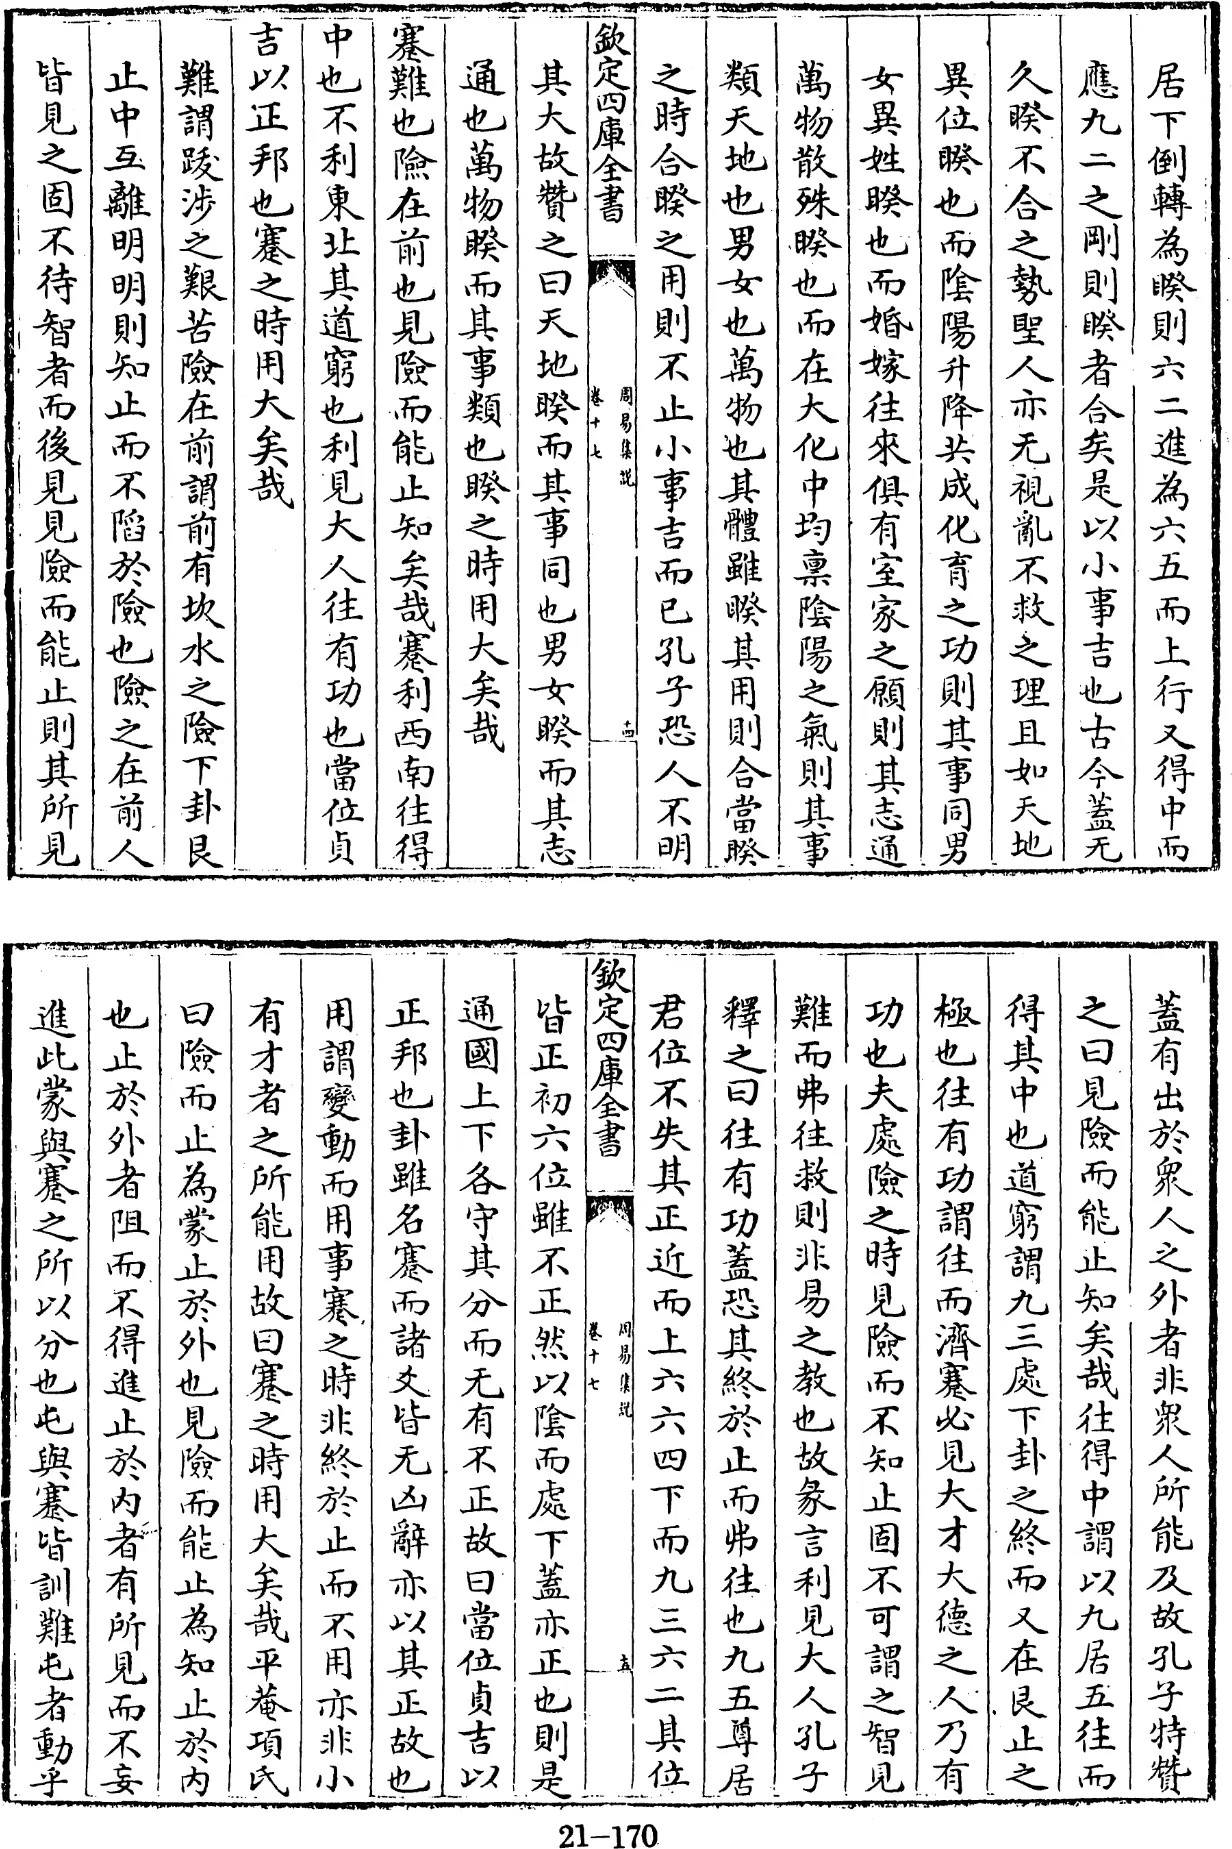 居下倒轉為睽則六二進為六五而上行又得中而
應九二之剛則睽者合矣是以小事吉也古今蓋无
久睽不合之勢聖人亦无視亂不救之理且如天地
異位睽也而陰陽升降共成化育之功則其事同男
女異姓睽也而婚嫁往來俱有室家之願則其志通
萬物散殊睽也而在大化中均禀陰陽之氣則其事
類天地也男女也萬物也其體雖睽其用則合當睽
之時合睽之用則不止小事吉而已孔子恐人不明
欽定四庫全書
周易集說
卷十七
十四
其大故贊之曰天地睽而其事同也男女睽而其志
通也萬物睽而其事類也睽之時用大矣哉
蹇難也險在前也見險而能止知矣哉蹇利西南往得
中也不利東北其道窮也利見大人往有功也當位貞
吉以正邦也蹇之時用大矣哉
難謂跋涉之艱苦險在前謂前有坎水之險下卦艮
止中互離明明則知止而不陷於險也險之在前人
皆見之固不待智者而後見見險而能止則其所見
蓋有出於衆人之外者非衆人所能及故孔子特贊
之曰見險而能止知矣哉往得中謂以九居五往而
得其中也道窮謂九三處下卦之終而又在艮止之
極也往有功謂往而濟蹇必見大才大德之人乃有
功也夫處險之時見險而不知止固不可謂之智見
難而弗往救則非易之教也故彖言利見大人孔子
釋之曰往有功蓋恐其終於止而弗往也九五尊居
君位不失其正近而上六六四下而九三六二其位
欽定四庫全書
周易集說
卷十七
十五
皆正初六位雖不正然以陰而處下蓋亦正也則是
通國上下各守其分而无有不正故曰當位貞吉以
正邦也卦雖名蹇而諸爻皆无凶辭亦以其正故也
用謂變動而用事蹇之時非終於止而不用亦非小
有才者之所能用故曰蹇之時用大矣哉平菴項氏
曰險而止為蒙止於外也見險而能止為知止於内
也止於外者阻而不得進止於内者有所見而不妄
進此蒙與蹇之所以分也屯與蹇皆訓難屯者動乎
21-170